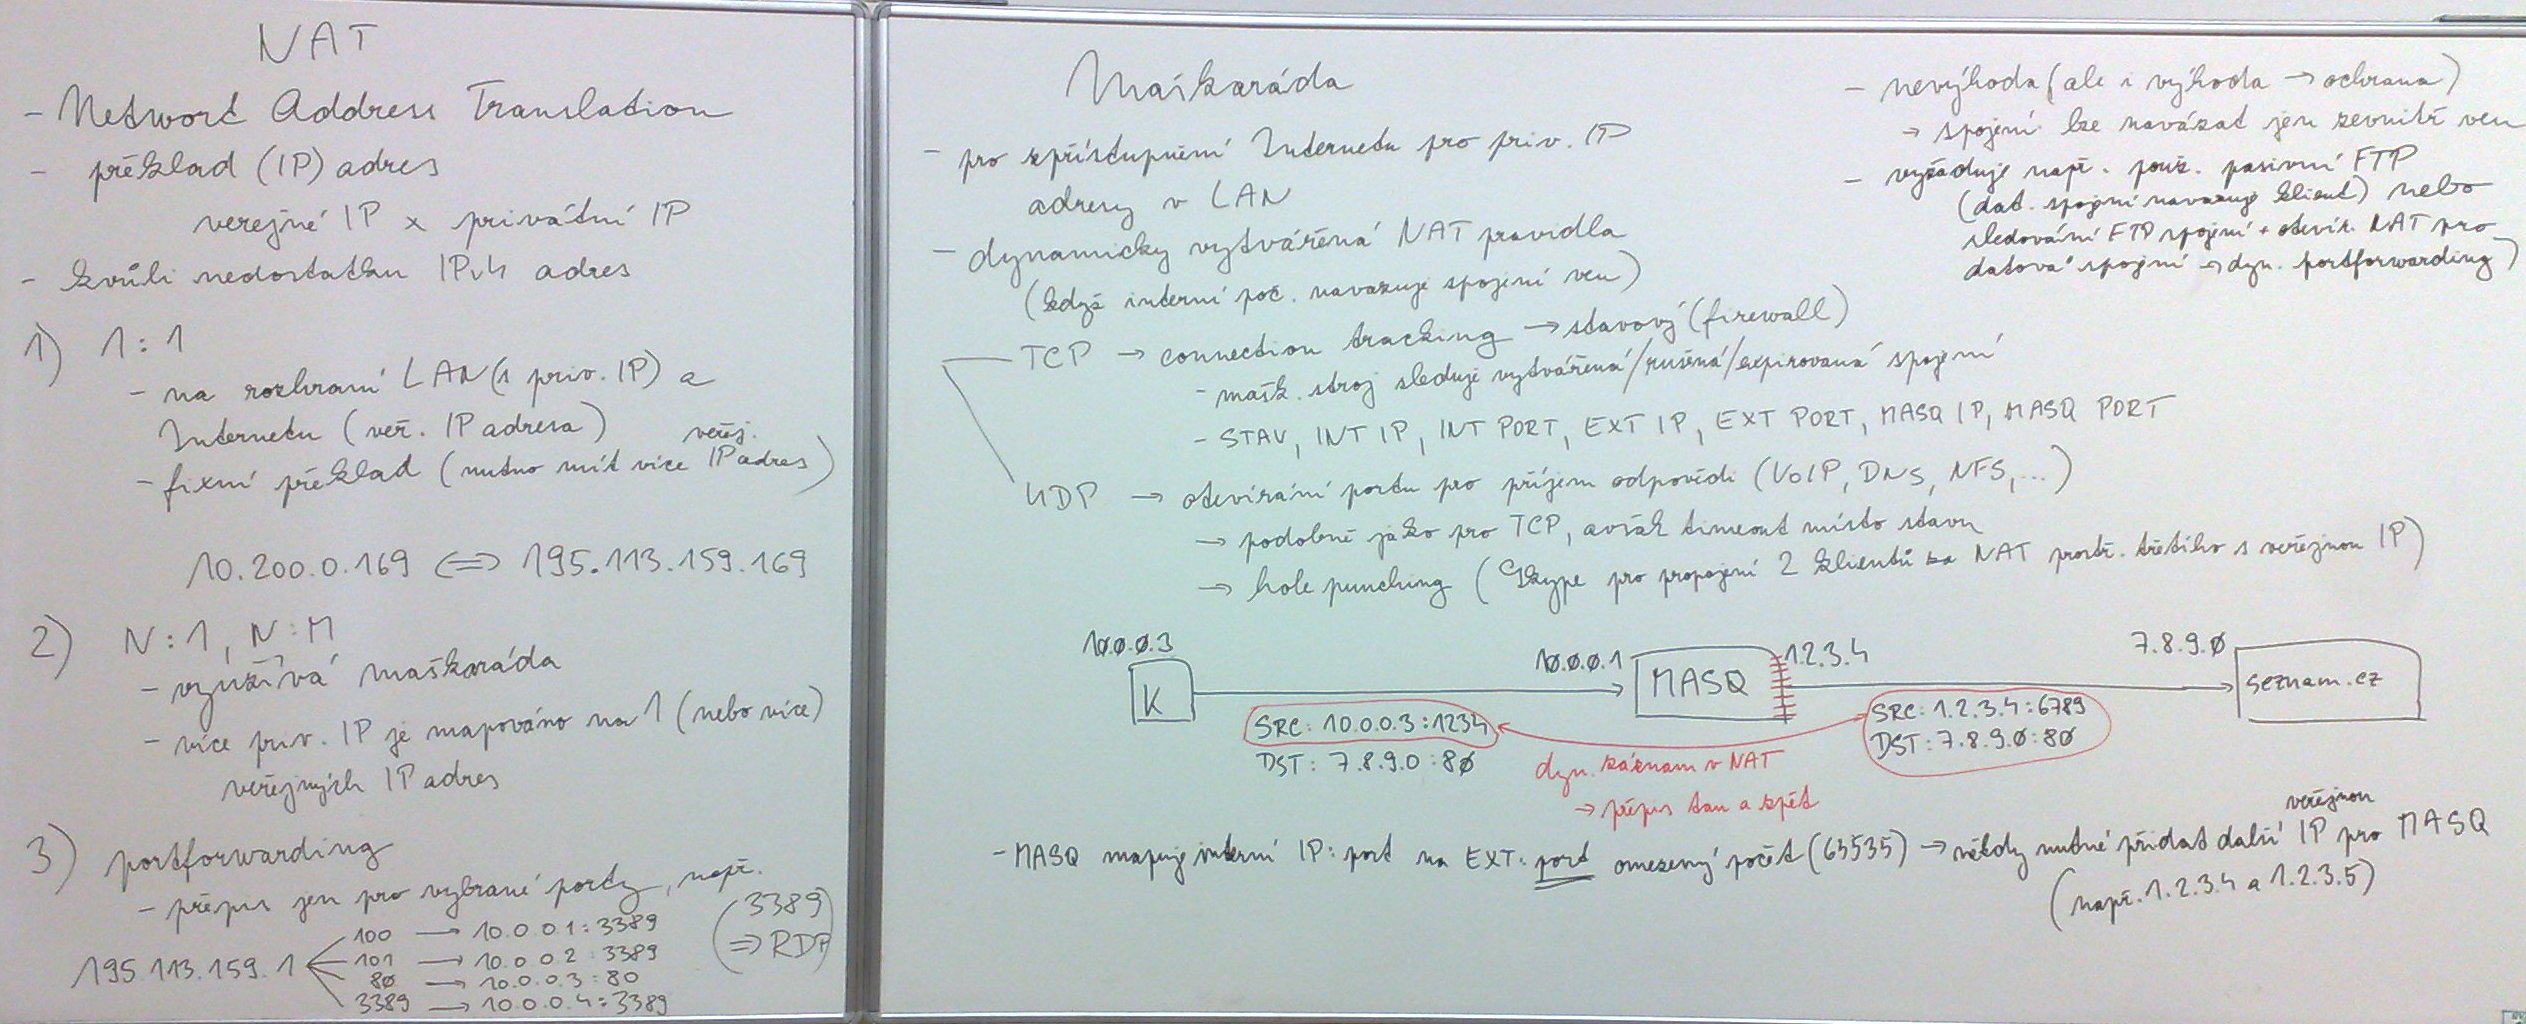 NAT
- Network Address Translation
- překlad (IP) adres
verejné IP x privátní IP
- kvůli nedostatku IPv4 adres
1) 1:1
- na rozhraní LAN (s priv. IP) a
Internetu (veř. IP adresa)
- fixní překlad (nutno mít více veřej. IP adres)
10.200.0.169 <=> 195.113.159.169
2) N:1, N:M
- využívá maškaráda
- více priv. IP je mapováno na 1 (nebo více)
veřejných IP adres
3) portforwarding
- přepis jen pro vybrané porty, např.
195.113.159.1
100 → 10.0.0.1:3389
101 → 10.0.0.2:3389
80 → 10.0.0.3:80
3389 → 10.0.0.4:3389
(3389
=> RDP)
Maškaráda
- pro zpřístupnění Internetu pro priv. IP
adresy v LAN
- dynamicky vytvářená NAT pravidla
(když interní poč. navazuje spojení ven)
TCP → connection tracking → stavový (firewall)
- mašk. stroj sleduje vytvářená/rušená/expirovaná spojení
- STAV, INT IP, INT PORT, EXT IP, EXT PORT, MASQ IP, MASQ PORT
UDP → otevírání portu pro příjem odpovědi (VoIP, DNS, NFS, ...)
→ podobně jako pro TCP, avšak timeout místo stavu
→ hole punching (Skype pro propojení 2 klientů za NAT prostř. třetího s veřejnou IP)
- nevýhoda (ale i výhoda → ochrana)
→ spojení lze navázat jen zevnitř ven
- vyžaduje např. použ. pasivní FTP
(dat. spojení navazuje klient) nebo
sledování FTP spojení + otevír. NAT pro
datová spojení → dyn. portforwarding)
10.0.0.3
K
10.0.0.1
MASQ
1.2.3.4
7.8.9.0
seznam.cz
SRC: 10.0.0.3:1234
DST: 7.8.9.0:80
SRC: 1.2.3.4:6789
DST: 7.8.9.0:80
dyn. záznam v NAT
→ přepis tam a zpět
- MASQ mapuje interní IP:port na EXT:port omezený počet (65535) → někdy nutné přidat další veřejnou IP pro MASQ
(např. 1.2.3.4 a 1.2.3.5)